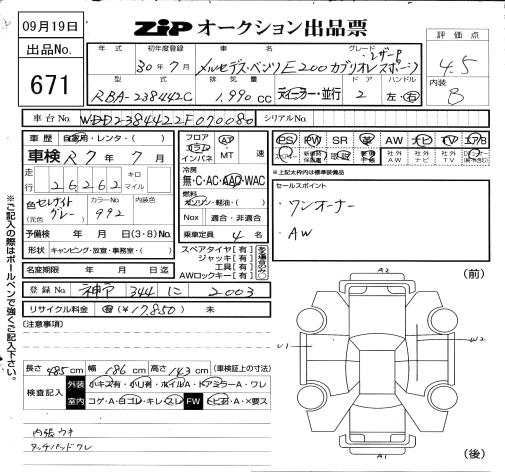 09月19日
ZIP オークション出品票
出品No.
671
年式
初年度登録
30年7月
車名
メルセデス・ベンツ E200 カブリオレ スポーツ
グレード
レザーP
評価点
4.5
型式
RBA-238442C
排気量
1,990cc
ディーラー・並行
ドア
2
ハンドル
左・右
内装
B
車台No.
WDD2384422F070080
シリアルNo.
車歴 自家用・レンタ・( )
車検 R7年7月
走行 26262 キロ マイル
色 セレナイトグレー
(元色)
カラーNo.
992
内装色
予備検 年 月 日 (3・8) No.
形状 キャンピング・放宣・事務室・( )
名変期限 年 月 日迄
フロア コラム インパネ
AT MT 速
冷房
無・C・AC・AAC・WAC
燃料
ガソリン・軽油・( )
Nox 適合・非適合
乗車定員 4名
スペアタイヤ[有]
ジャッキ[有]
工具[有]
AWロックキー[有]
ある場合のみ〇
PS PW SR 革 AW ナビ TV
社外AW 社外ナビ 社外TV
※上記太枠内は標準装備品
セールスポイント
ワンオーナー
AW
登録No. 神戸 344 に 2003
リサイクル料金 有 (¥17,850) 未
[注意事項]
長さ 485cm 幅 186cm 高さ 143cm (車検証上の寸法)
検査記入
外装 小キズ有・小凹有・ホイルA・ドアミラーA・ワレ
室内 コゲ・A・ヨゴレ・キレ・スレ FW トビ石・A・X要ス
内張ウキ
タッチパッドワレ
A2
U1
W2
A2
(前)
(後)
※ご記入の際はボールペンで強くご記入下さい。